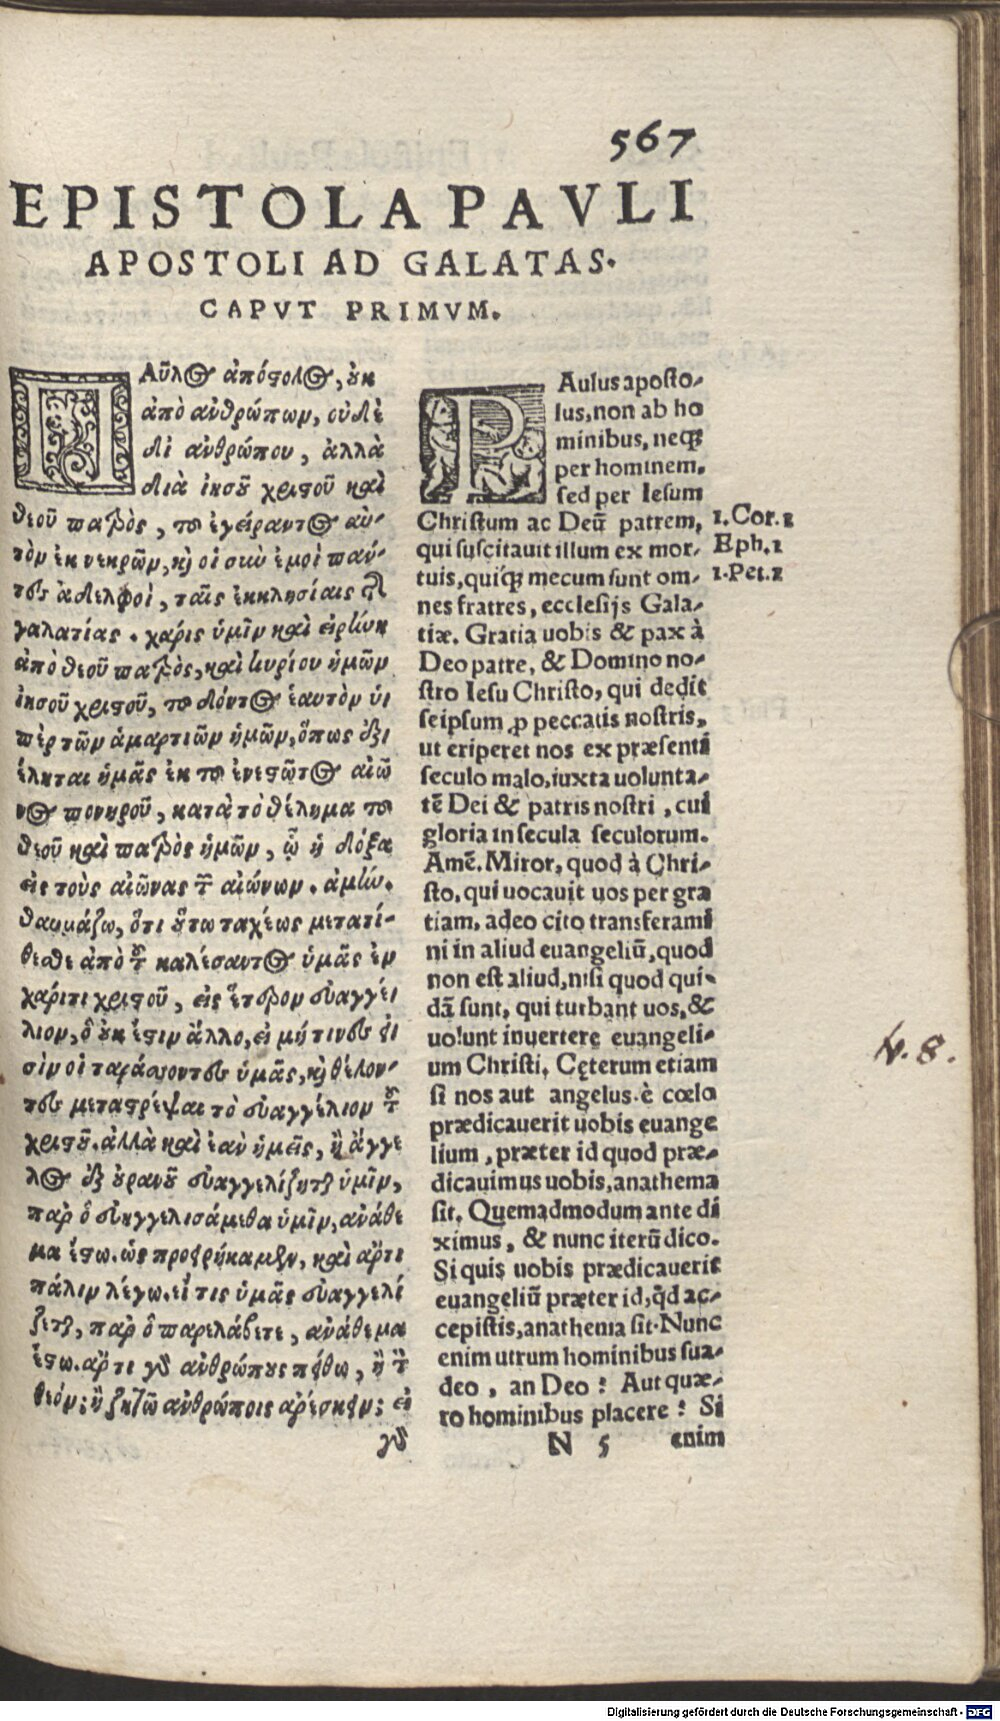 567
EPISTOLA PAVLI
APOSTOLI AD GALATAS.
CAPVT PRIMVM.
ΠΑῦλος ἀπόστολος, ȣκ
ἀπὸ ἀνθρώπων, οὐδὲ
δι ἀνθρώπου, ἀλλὰ
διὰ ἰησȣ͂ χριστοῦ καὶ
θεοῦ πατρὸς, τοῦ ἐγείραντος αὐ-
τὸν ἐκ νεκρῶν, κ̀ οἱ σὺν ἐμοὶ πάν-
τες ἀδελφοὶ, ταῖς ἐκκλησίαις τῆς
γαλατίας. χάρις ὑμῖν καὶ εἰρήνη
ἀπὸ θεοῦ πατρὸς, καὶ κυρίου ἡμῶν
ἰησοῦ χριστοῦ, τοῦ δόντος ἑαυτὸν ὑ
πὲρ τῶν ἁμαρτιῶν ἡμῶν, ὅπως ἐξ
έληται ἡμᾶς ἐκ τοῦ ἐνεστῶτος αἰῶ
νος πονηροῦ, κατὰ τὸ θέλημα τοῦ
θεοῦ καὶ πατρὸς ἡμῶν, ᾧ ἡ δόξα
εἰς τοὺς αἰῶνας τῶν αἰώνων. ἀμήν.
θαυμάζω, ὅτι ȣ̔́τω ταχέως μετατί-
θεσθε ἀπὸ τȣ͂ καλέσαντος ὑμᾶς ἐν
χάριτι χριστοῦ, εἰς ἕτερον εὐαγγέ
λιον, ὃ ȣ̓κ ἔστιν ἄλλο, εἰ μή τινές εἰ
σὶν οἱ ταράσσοντες ὑμᾶς, κ̀ θέλον-
τες μεταστρέψαι τὸ εὐαγγέλιον τȣ͂
χριστȣ͂. ἀλλὰ καὶ ἐὰν ἡμεῖς, ἢ ἄγγε
λος ἐξ ȣ̓ρανȣ͂ εὐαγγελίζηται ὑμῖν,
παρ ὃ εὐηγγελισάμεθα ὑμῖν, ἀνάθε
μα ἔστω. ὡς προειρήκαμεν, καὶ ἄρτι
πάλιν λέγω. εἴ τις ὑμᾶς εὐαγγελί
ζεται, παρ ὃ παρελάβετε, ἀνάθεμα
ἔστω. ἄρτι γὰρ ἀνθρώπȣς πείθω, ἢ τὸν
θεόν; ἢ ζητῶ ἀνθρώποις ἀρέσκειν; εἰ
γὰρ
PAulus aposto-
lus, non ab ho
minibus, neq;
per hominem,
sed per Iesum
Christum ac Deũ patrem,
qui suscitauit illum ex mor-
tuis, quiq; mecum sunt om-
nes fratres, ecclesijs Gala-
tiæ. Gratia uobis & pax à
Deo patre, & Domino no-
stro Iesu Christo, qui dedit
seipsum ꝓ peccatis nostris,
ut eriperet nos ex præsenti
seculo malo, iuxta uolunta-
tẽ Dei & patris nostri, cui
gloria in secula seculorum.
Amẽ. Miror, quod à Chri-
sto, qui uocauit uos per gra
tiam, adeo cito transferami
ni in aliud euangeliũ, quod
non est aliud, nisi quod qui-
dã sunt, qui turbant uos, &
uolunt inuertere euangeli-
um Christi. Cęterum etiam
si nos aut angelus è cœlo
prædicauerit uobis euange
lium, præter id quod præ-
dicauimus uobis, anathema
sit. Quemadmodum ante di
ximus, & nunc iterũ dico.
Si quis uobis prædicauerit
euangeliũ præter id, q̃d ac-
cepistis, anathema sit. Nunc
enim utrum hominibus sua-
deo, an Deo? Aut quæ-
ro hominibus placere? Si
N 5 enim
1. Cor. 1
Eph. 1
1. Pet. 1
N. 8.
Digitalisierung gefördert durch die Deutsche Forschungsgemeinschaft - DFG